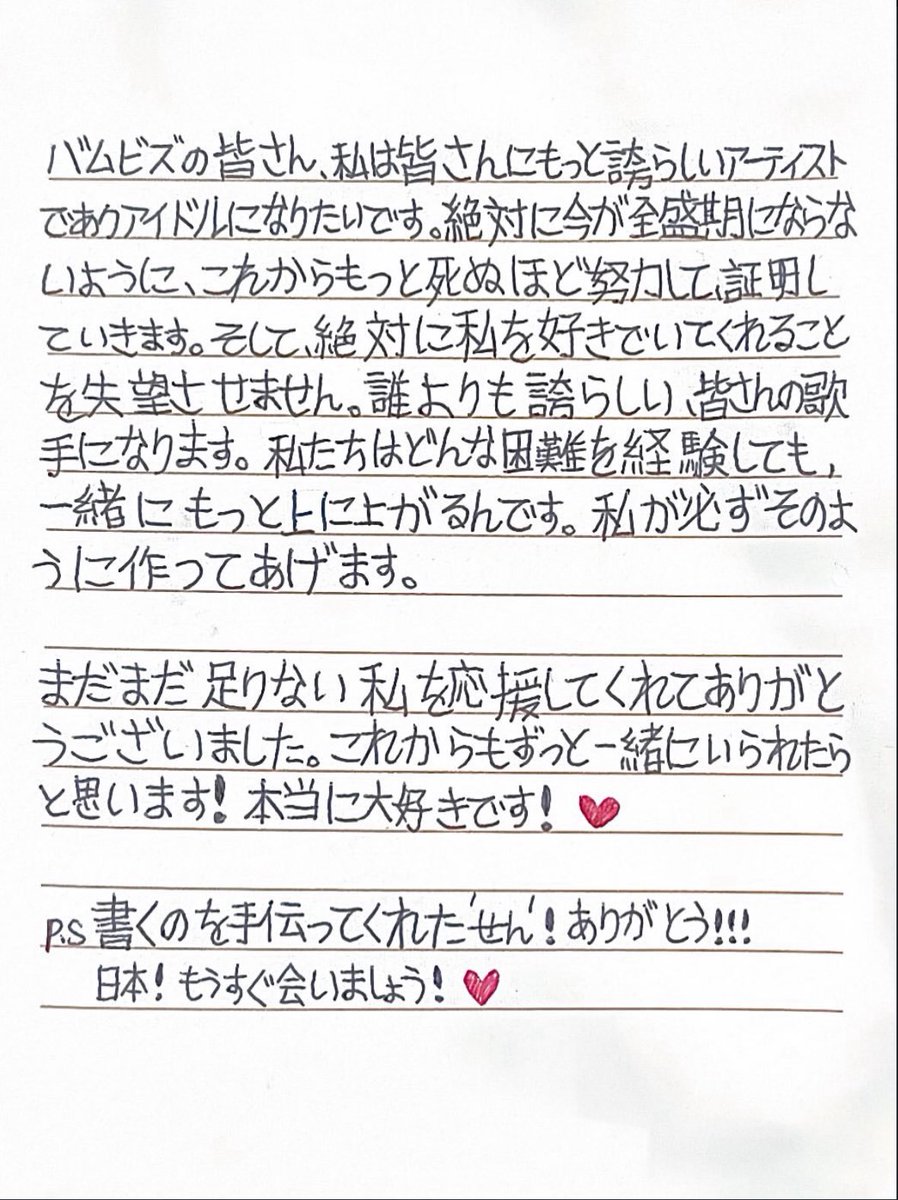 バムビズの皆さん、私は皆さんにもっと誇らしいアーティスト
でありアイドルになりたいです。絶対に今が全盛期にならな
いように、これからもっと死ぬほど努力して、証明し
ていきます。そして、絶対に私を好きでいてくれること
を失望させません。誰よりも誇らしい、皆さんの歌
手になります。私たちはどんな困難を経験しても、
一緒にもっと上に上がるんです。私が必ずそのよ
うに作ってあげます。
まだまだ足りない私を応援してくれてありがと
うございました。これからもずっと一緒にいられたら
と思います!本当に大好きです!♥
P.S 書くのを手伝ってくれた'せん'!ありがとう!!!
日本!もうすぐ会いましょう!♥